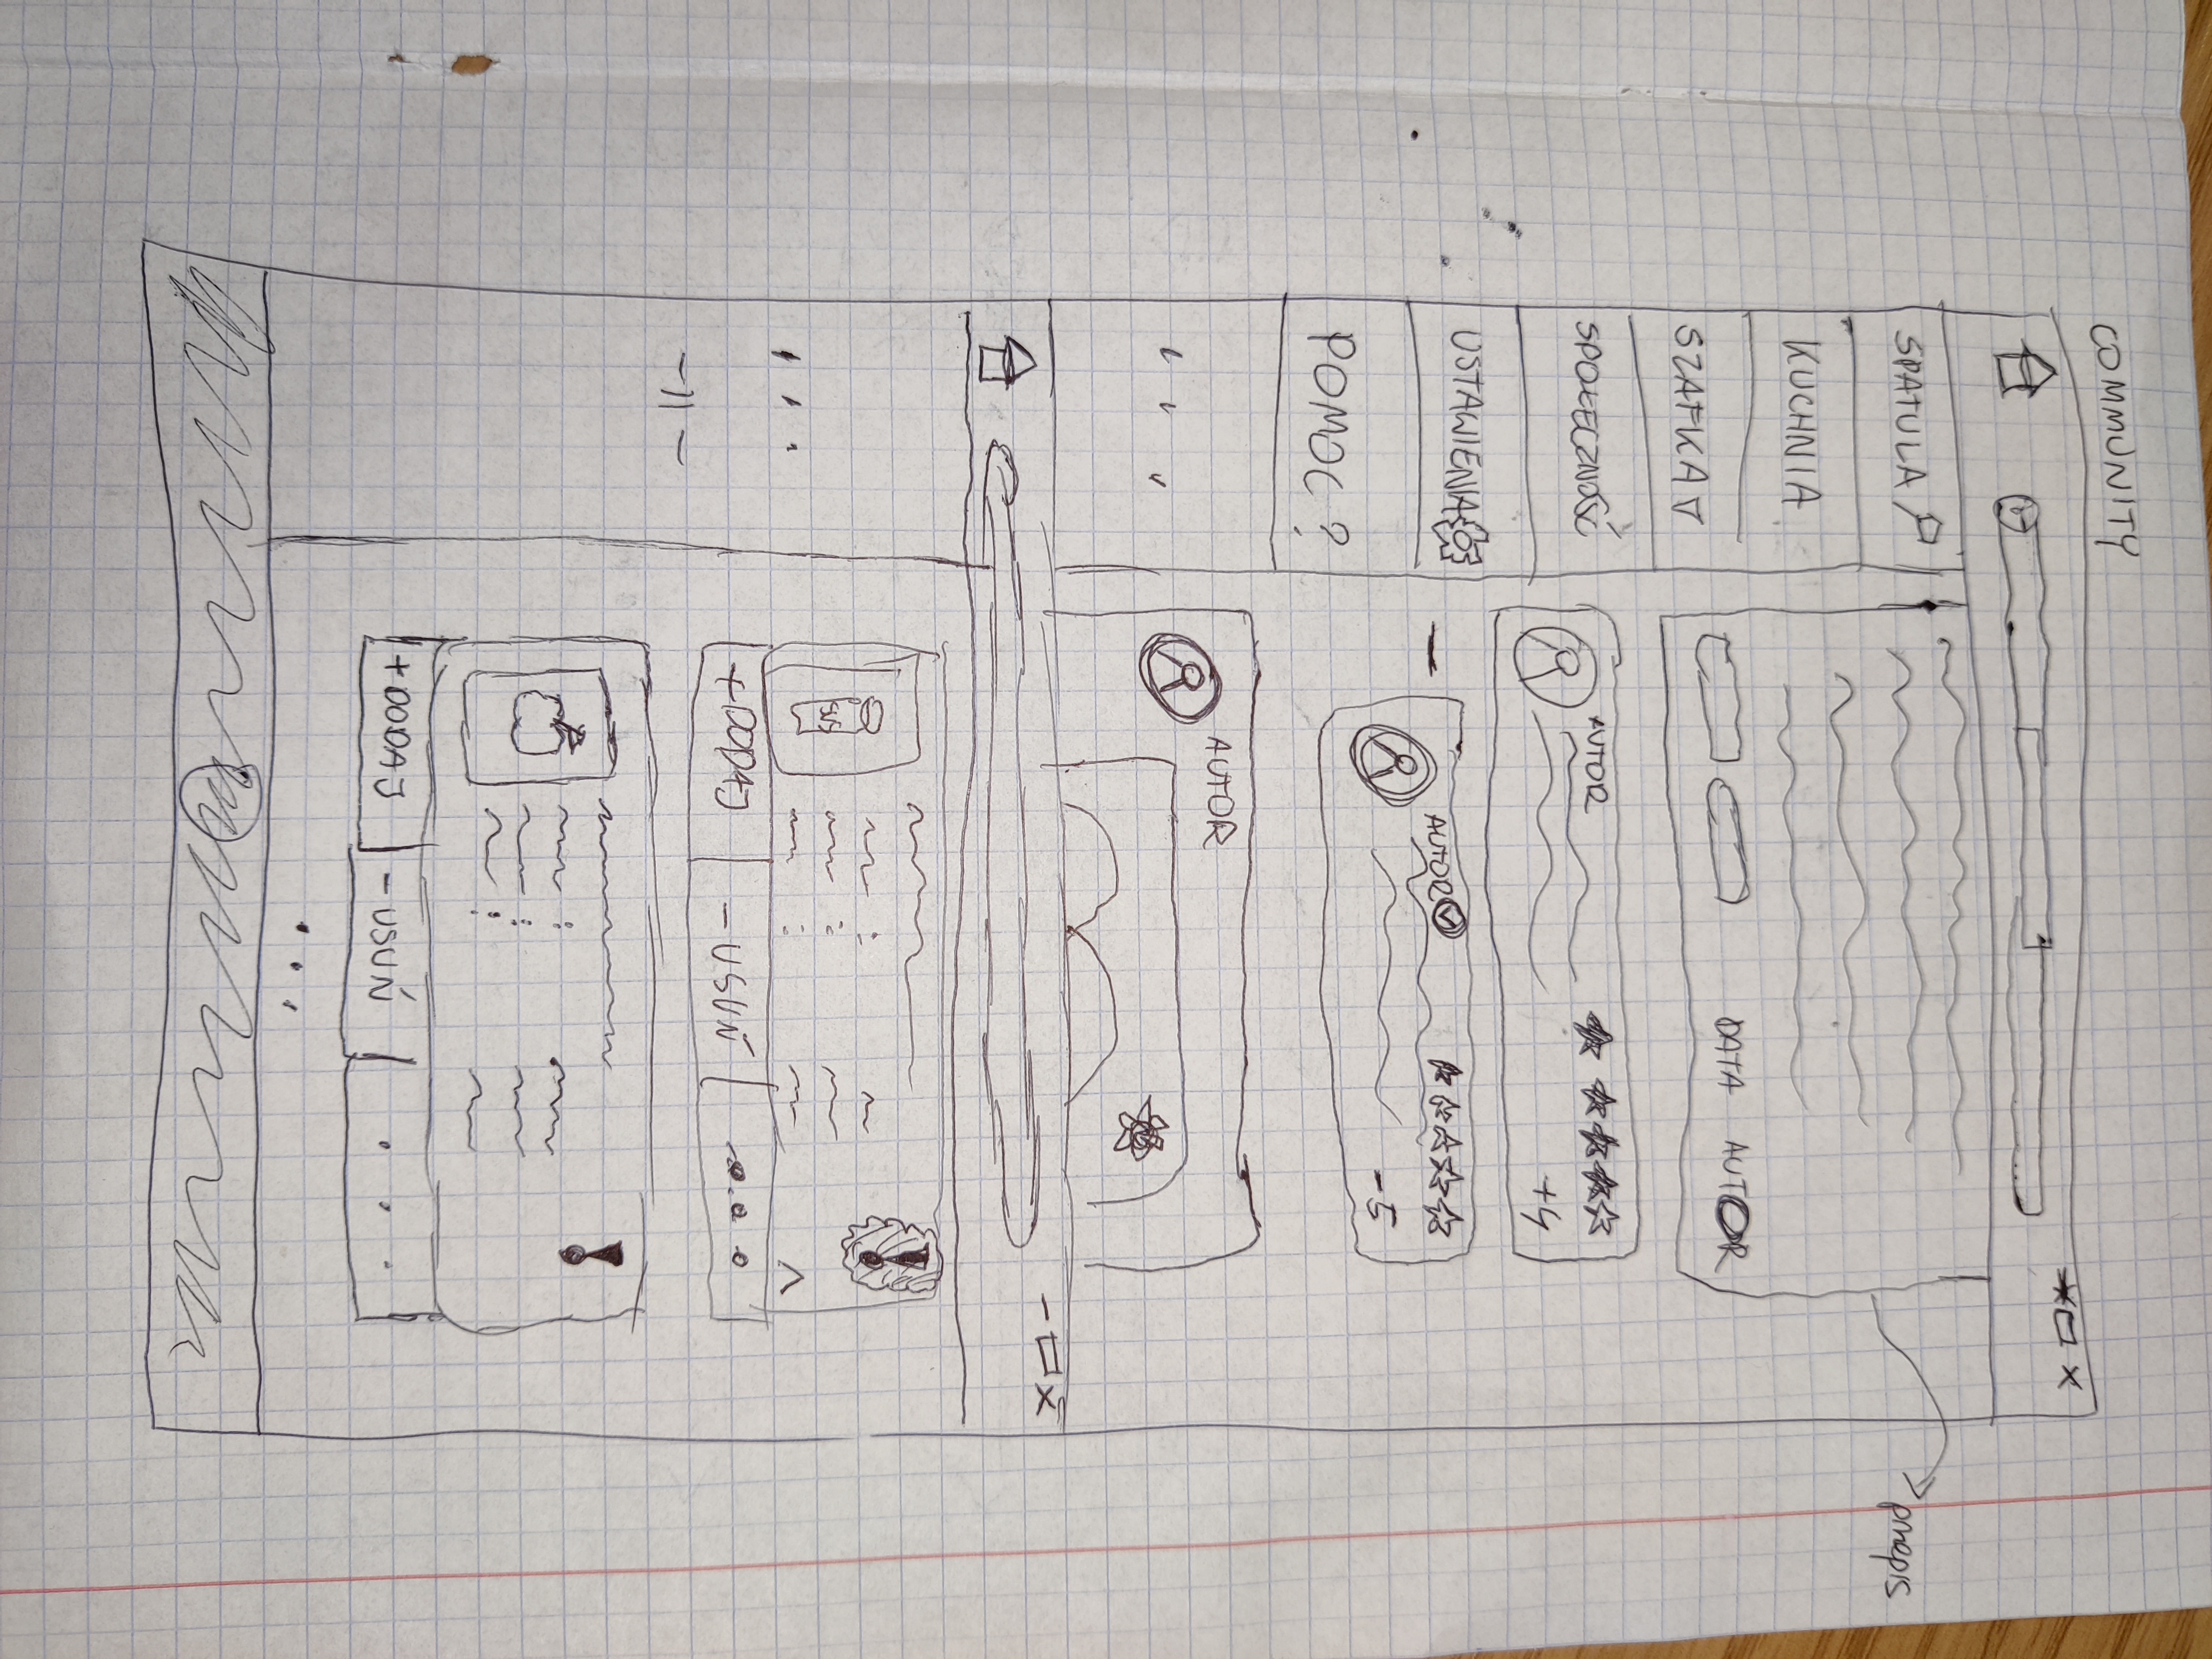 COMMUNITY
SPATULA
KUCHNIA
SZAFKA
SPOŁECZNOŚĆ
USTAWIENIA
POMOC ?
DATA AUTOR
przepis
AUTOR
+4
AUTOR
-5
AUTOR
- □ x
+DODAJ
-USUŃ
-11-
+DODAJ
-USUŃ